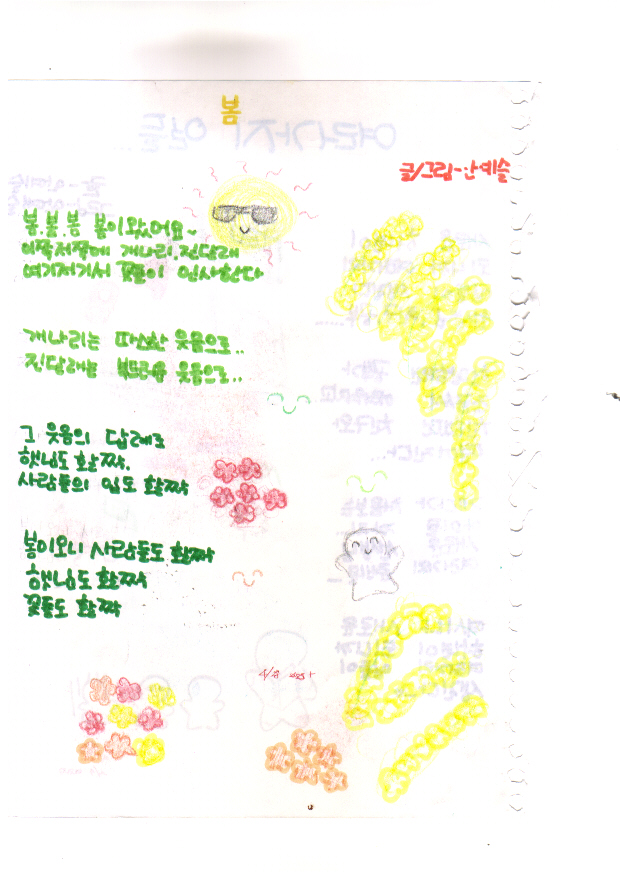 봄
글/그림-안예슬
봄.봄.봄 봄이왔어요~
이쪽저쪽에 개나리.진달래
여기저기서 꽃들이 인사한다
개나리는 따스한 웃음으로..
진달래는 부드러운 웃음으로..
그 웃음의 답례로
햇님도 활짝.
사람들의 입도 활짝
봄이오니 사람들도 활짝
햇님도 활짝
꽃들도 활짝